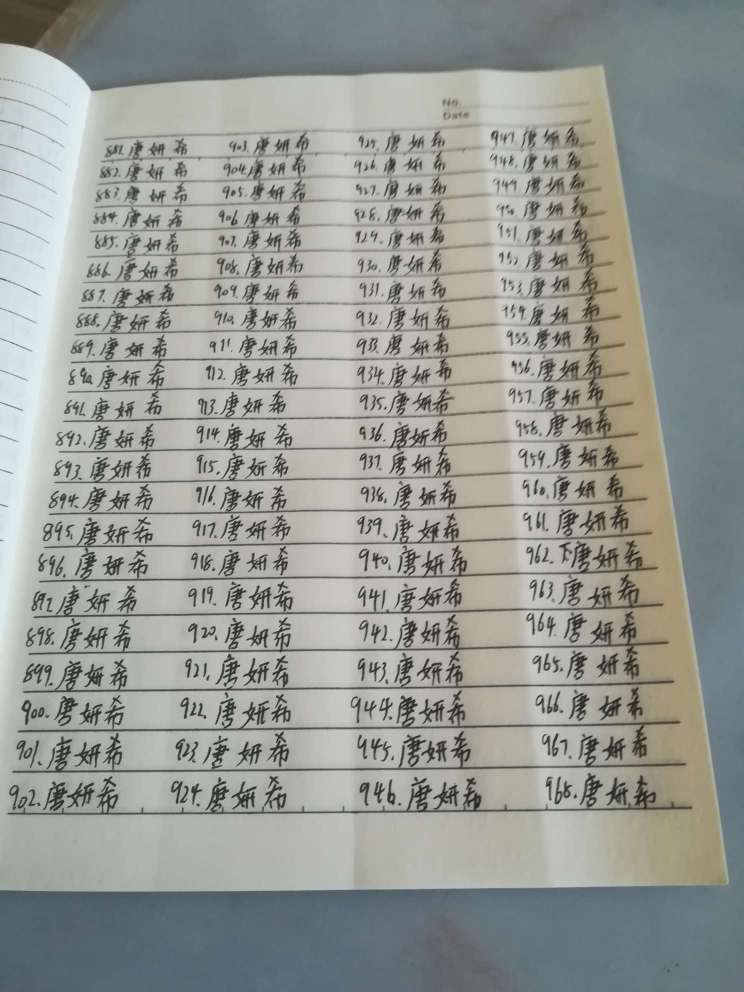 No.
Date
881.唐妍希
882.唐妍希
883.唐妍希
884.唐妍希
885.唐妍希
886.唐妍希
887.唐妍希
888.唐妍希
889.唐妍希
890.唐妍希
891.唐妍希
892.唐妍希
893.唐妍希
894.唐妍希
895.唐妍希
896.唐妍希
897.唐妍希
898.唐妍希
899.唐妍希
900.唐妍希
901.唐妍希
902.唐妍希
903.唐妍希
904.唐妍希
905.唐妍希
906.唐妍希
907.唐妍希
908.唐妍希
909.唐妍希
910.唐妍希
911.唐妍希
912.唐妍希
913.唐妍希
914.唐妍希
915.唐妍希
916.唐妍希
917.唐妍希
918.唐妍希
919.唐妍希
920.唐妍希
921.唐妍希
922.唐妍希
923.唐妍希
924.唐妍希
925.唐妍希
926.唐妍希
927.唐妍希
928.唐妍希
929.唐妍希
930.唐妍希
931.唐妍希
932.唐妍希
933.唐妍希
934.唐妍希
935.唐妍希
936.唐妍希
937.唐妍希
938.唐妍希
939.唐妍希
940.唐妍希
941.唐妍希
942.唐妍希
943.唐妍希
944.唐妍希
945.唐妍希
946.唐妍希
947.唐妍希
948.唐妍希
949.唐妍希
950.唐妍希
951.唐妍希
952.唐妍希
953.唐妍希
954.唐妍希
955.唐妍希
956.唐妍希
957.唐妍希
958.唐妍希
959.唐妍希
960.唐妍希
961.唐妍希
962.唐妍希
963.唐妍希
964.唐妍希
965.唐妍希
966.唐妍希
967.唐妍希
968.唐妍希